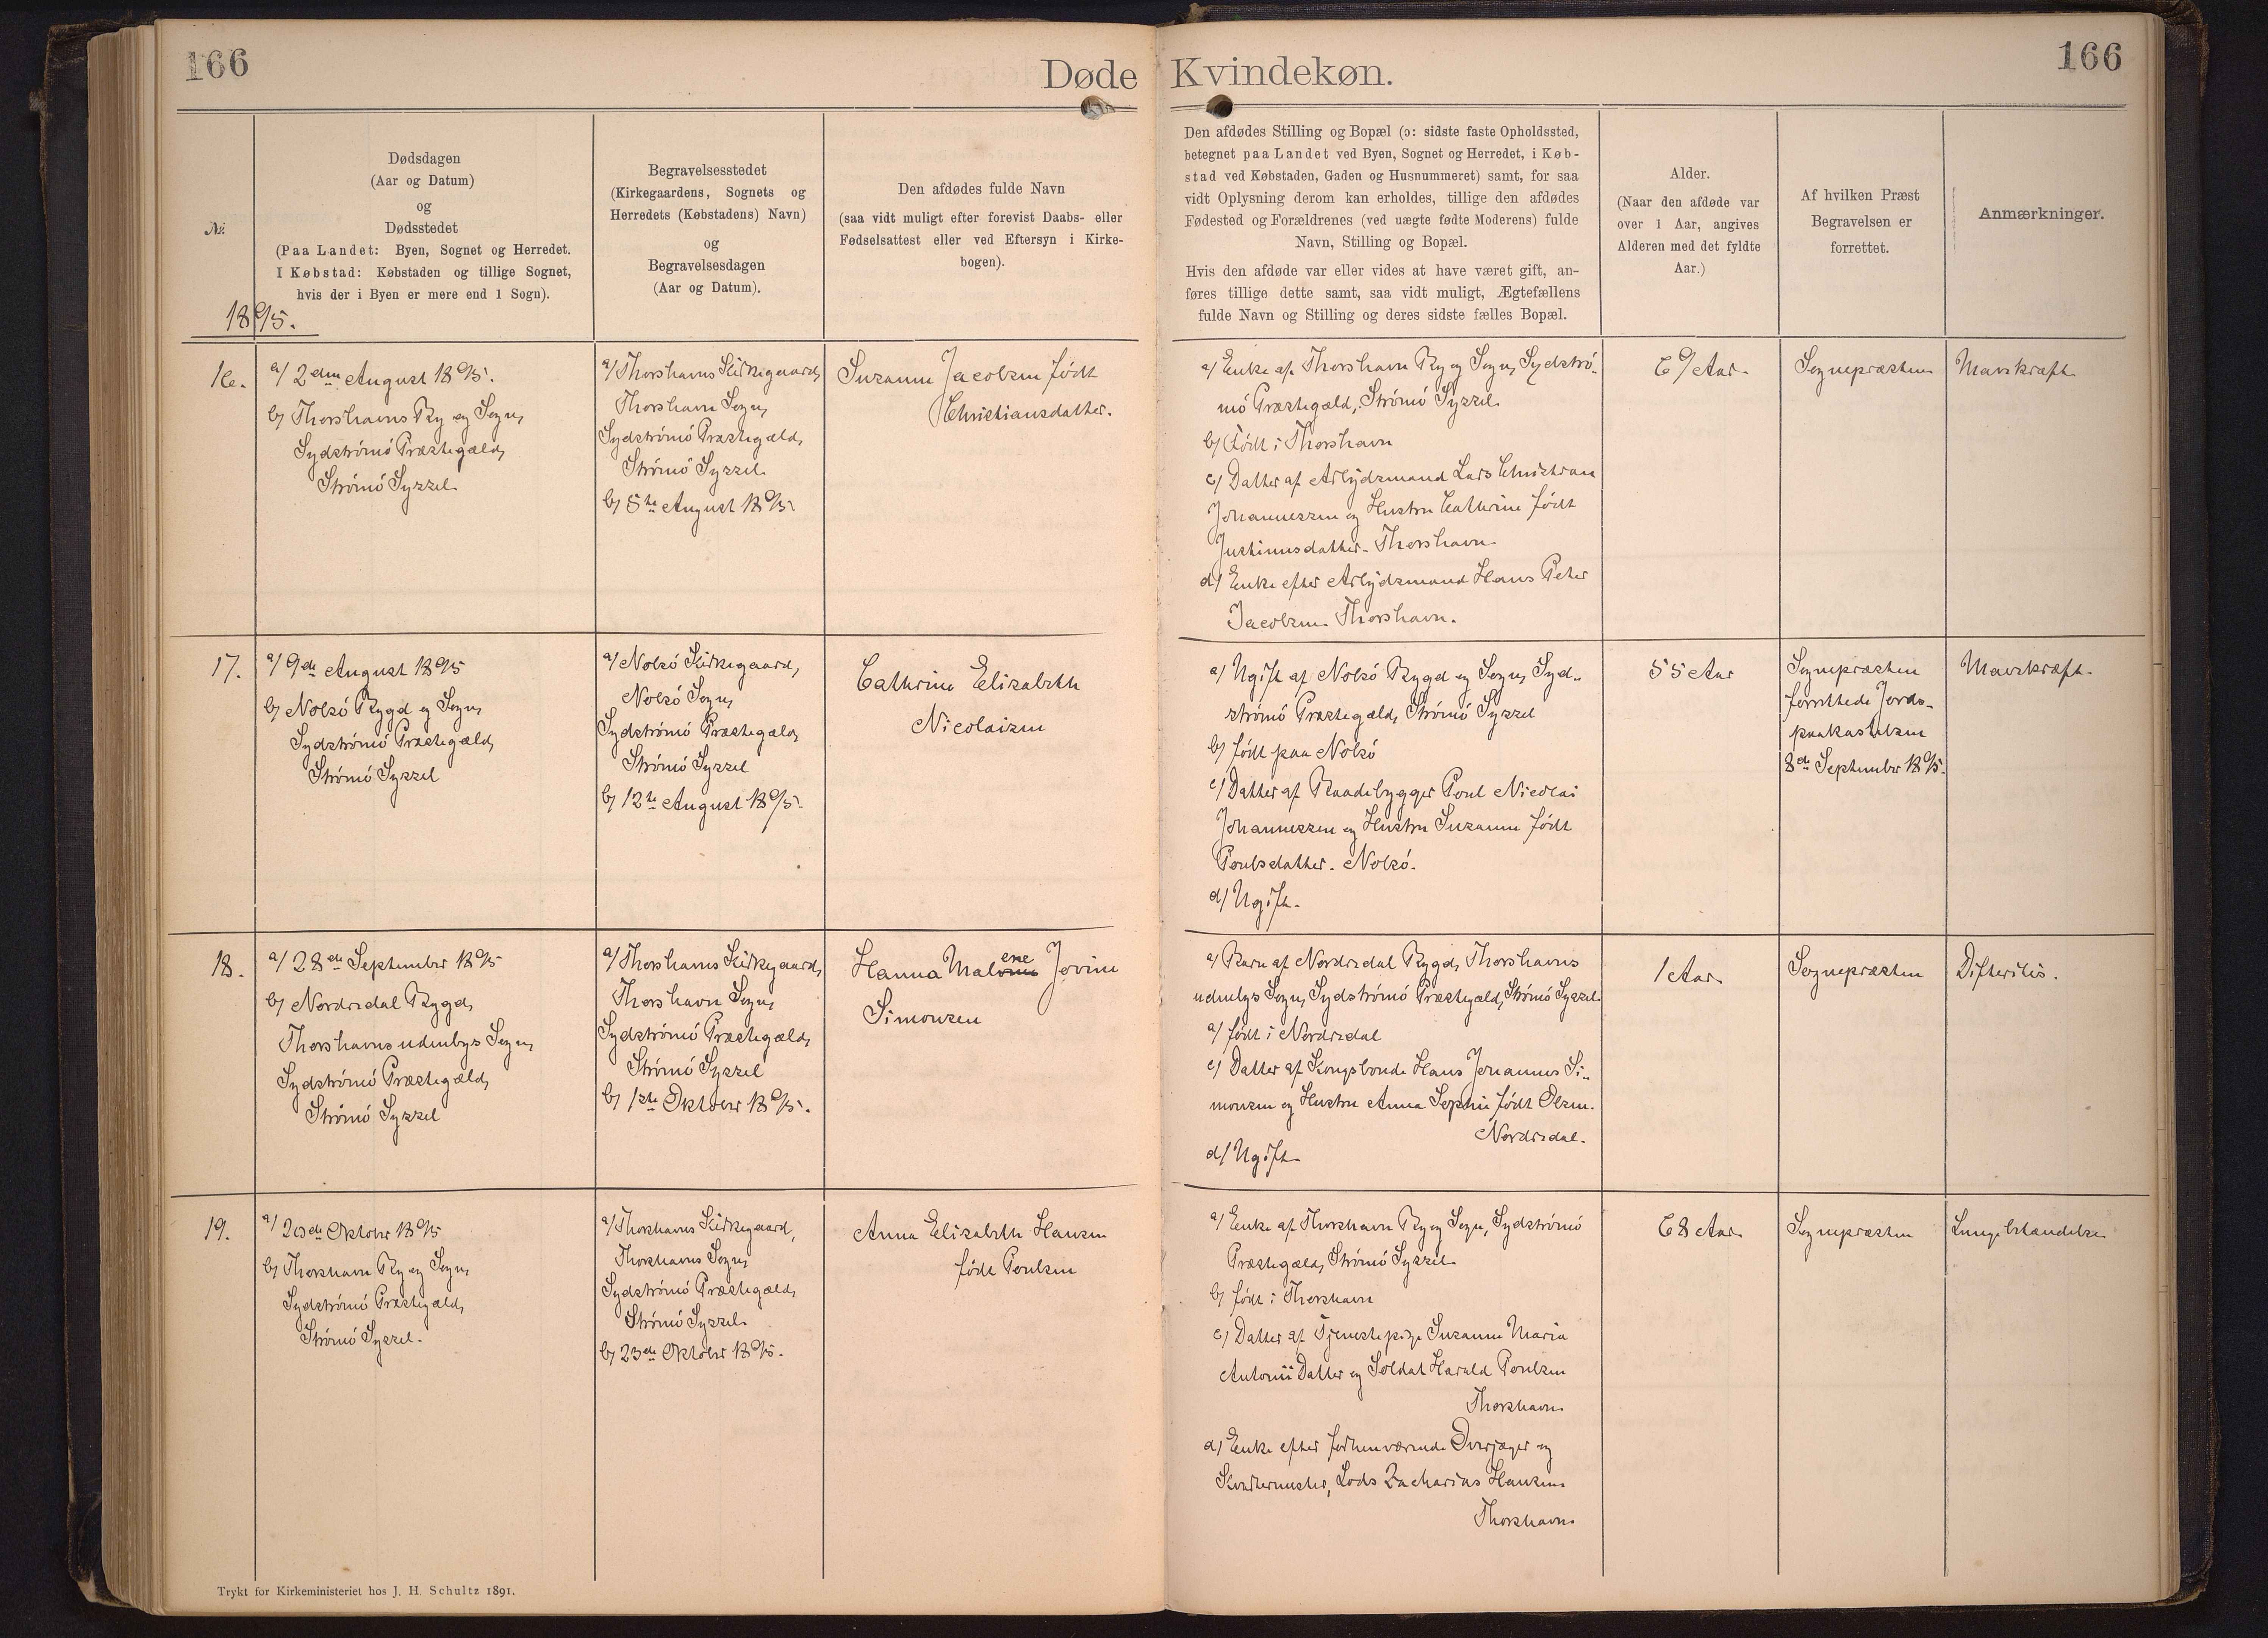 166
Døde Kvindekøn.
166
№
Dødsdagen
(Aar og Datum)
og
Dødsstedet
(Paa Landet: Byen, Sognet og Herredet.
I Købstad: Købstaden og tillige Sognet,
hvis der i Byen er mere end 1 Sogn).
1895.
Begravelsesstedet
(Kirkegaardens, Sognets og
Herredets (Købstadens) Navn)
og
Begravelsesdagen
(Aar og Datum).
Den afdødes fulde Navn
(saa vidt muligt efter forevist Daabs- eller
Fødselsattest eller ved Eftersyn i Kirke-
bogen).
Den afdødes Stilling og Bopæl (ɔ: sidste faste Opholdssted,
betegnet paa Landet ved Byen, Sognet og Herredet, i Køb-
stad ved Købstaden, Gaden og Husnummeret) samt, for saa
vidt Oplysning derom kan erholdes, tillige den afdødes
Fødested og Forældrenes (ved uægte fødte Moderens) fulde
Navn, Stilling og Bopæl.
Hvis den afdøde var eller vides at have været gift, an-
føres tillige dette samt, saa vidt muligt, Ægtefællens
fulde Navn og Stilling og deres sidste fælles Bopæl.
Alder.
(Naar den afdøde var
over 1 Aar, angives
Alderen med det fyldte
Aar.)
Af hvilken Præst
Begravelsen er
forrettet.
Anmærkninger.
16.
a/ 2den August 1895.
b/ Thorshavns By og Sogn,
Sydströmö Præstegæld,
Strömö Syssel
a/ Thorshavns Kirkegaard,
Thorshavn Sogn,
Sydströmö Præstegæld,
Strömö Syssel
b/ 5te August 1895
Susanne Jacobsen født
Christiansdatter.
a/ Enke af Thorshavn By og Sogn, Sydströ-
mö Præstegæld, Strömö Syssel
b/ Født i Thorshavn
c/ Datter af Arbejdsmand Lars Christian
Johannessen og Hustru Cathrine født
Justinusdatter. Thorshavn.
d/ Enke efter Arbejdsmand Hans Peter
Jacobsen Thorshavn.
69 Aar
Sognepræsten
Mavekræft
17.
a/ 9de August 1895
b/ Nolsö Bygd og Sogn,
Sydströmö Præstegæld,
Strömö Syssel
a/ Nolsö Kirkegaard,
Nolsö Sogn,
Sydströmö Præstegæld,
Strömö Syssel
b/ 12te August 1895.
Cathrine Elisabeth
Nicolaisen
a/ Ugift af Nolsö Bygd og Sogn, Syd-
strömö Præstegæld, Strömö Syssel
b/ født paa Nolsö
c/ Datter af Baadebygger Poul Nicolai
Johannessen og Hustru Susanne født
Poulsdatter. Nolsö.
d/ Ugift.
55 Aar
Sognepræsten
forrettede Jords-
paakastelsen
8de September 1895.
Mavekræft.
18.
a/ 28de September 1895
b/ Nordredal Bygd,
Thorshavns udenbys Sogn,
Sydströmö Præstegæld,
Strömö Syssel
a/ Thorshavns Kirkegaard,
Thorshavn Sogn,
Sydströmö Præstegæld,
Strömö Syssel
b/ 1ste Oktober 1895.
Hanna Malene Jovine
Simonsen
a/ Barn af Nordredal Bygd, Thorshavns
udenbys Sogn, Sydströmö Præstegæld, Strömö Syssel.
a/ født i Nordredal
c/ Datter af Kongsbonde Hans Johannes Si-
monsen og Hustru Anna Sophie født Olsen.
Nordredal.
d/ Ugift
1 Aar
Sognepræsten
Difteritis.
19.
a/ 20de Oktober 1895
b/ Thorshavn By og Sogn,
Sydströmö Præstegæld,
Strömö Syssel.
a/ Thorshavns Kirkegaard,
Thorshavns Sogn,
Sydströmö Præstegæld,
Strömö Syssel.
b/ 23de Oktober 1895.
Anna Elisabeth Hansen
født Poulsen
a/ Enke af Thorshavn By og Sogn, Sydströmö
Præstegæld, Strömö Syssel
b/ født i Thorshavn
c/ Datter af Tjenestepige Susanne Maria
Antonii Datter og Soldat Harald Poulsen
Thorshavn
d/ Enke efter forhenværende Overjæger og
Kvartermester, Lods Zacharias Hansen.
Thorshavn
68 Aar
Sognepræsten
Lungebetændelse
Trykt for Kirkeministeriet hos J. H. Schultz 1891.